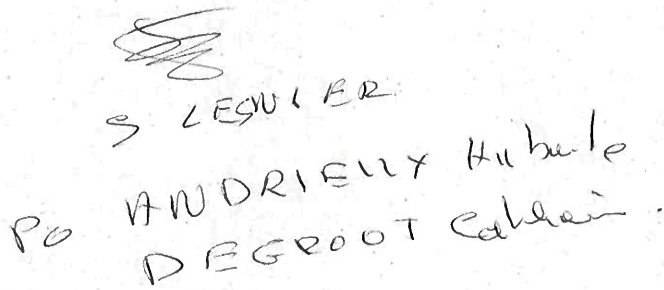 S LESNIER
Po ANDRIEUX Hubule
DEGROOT Cathain.